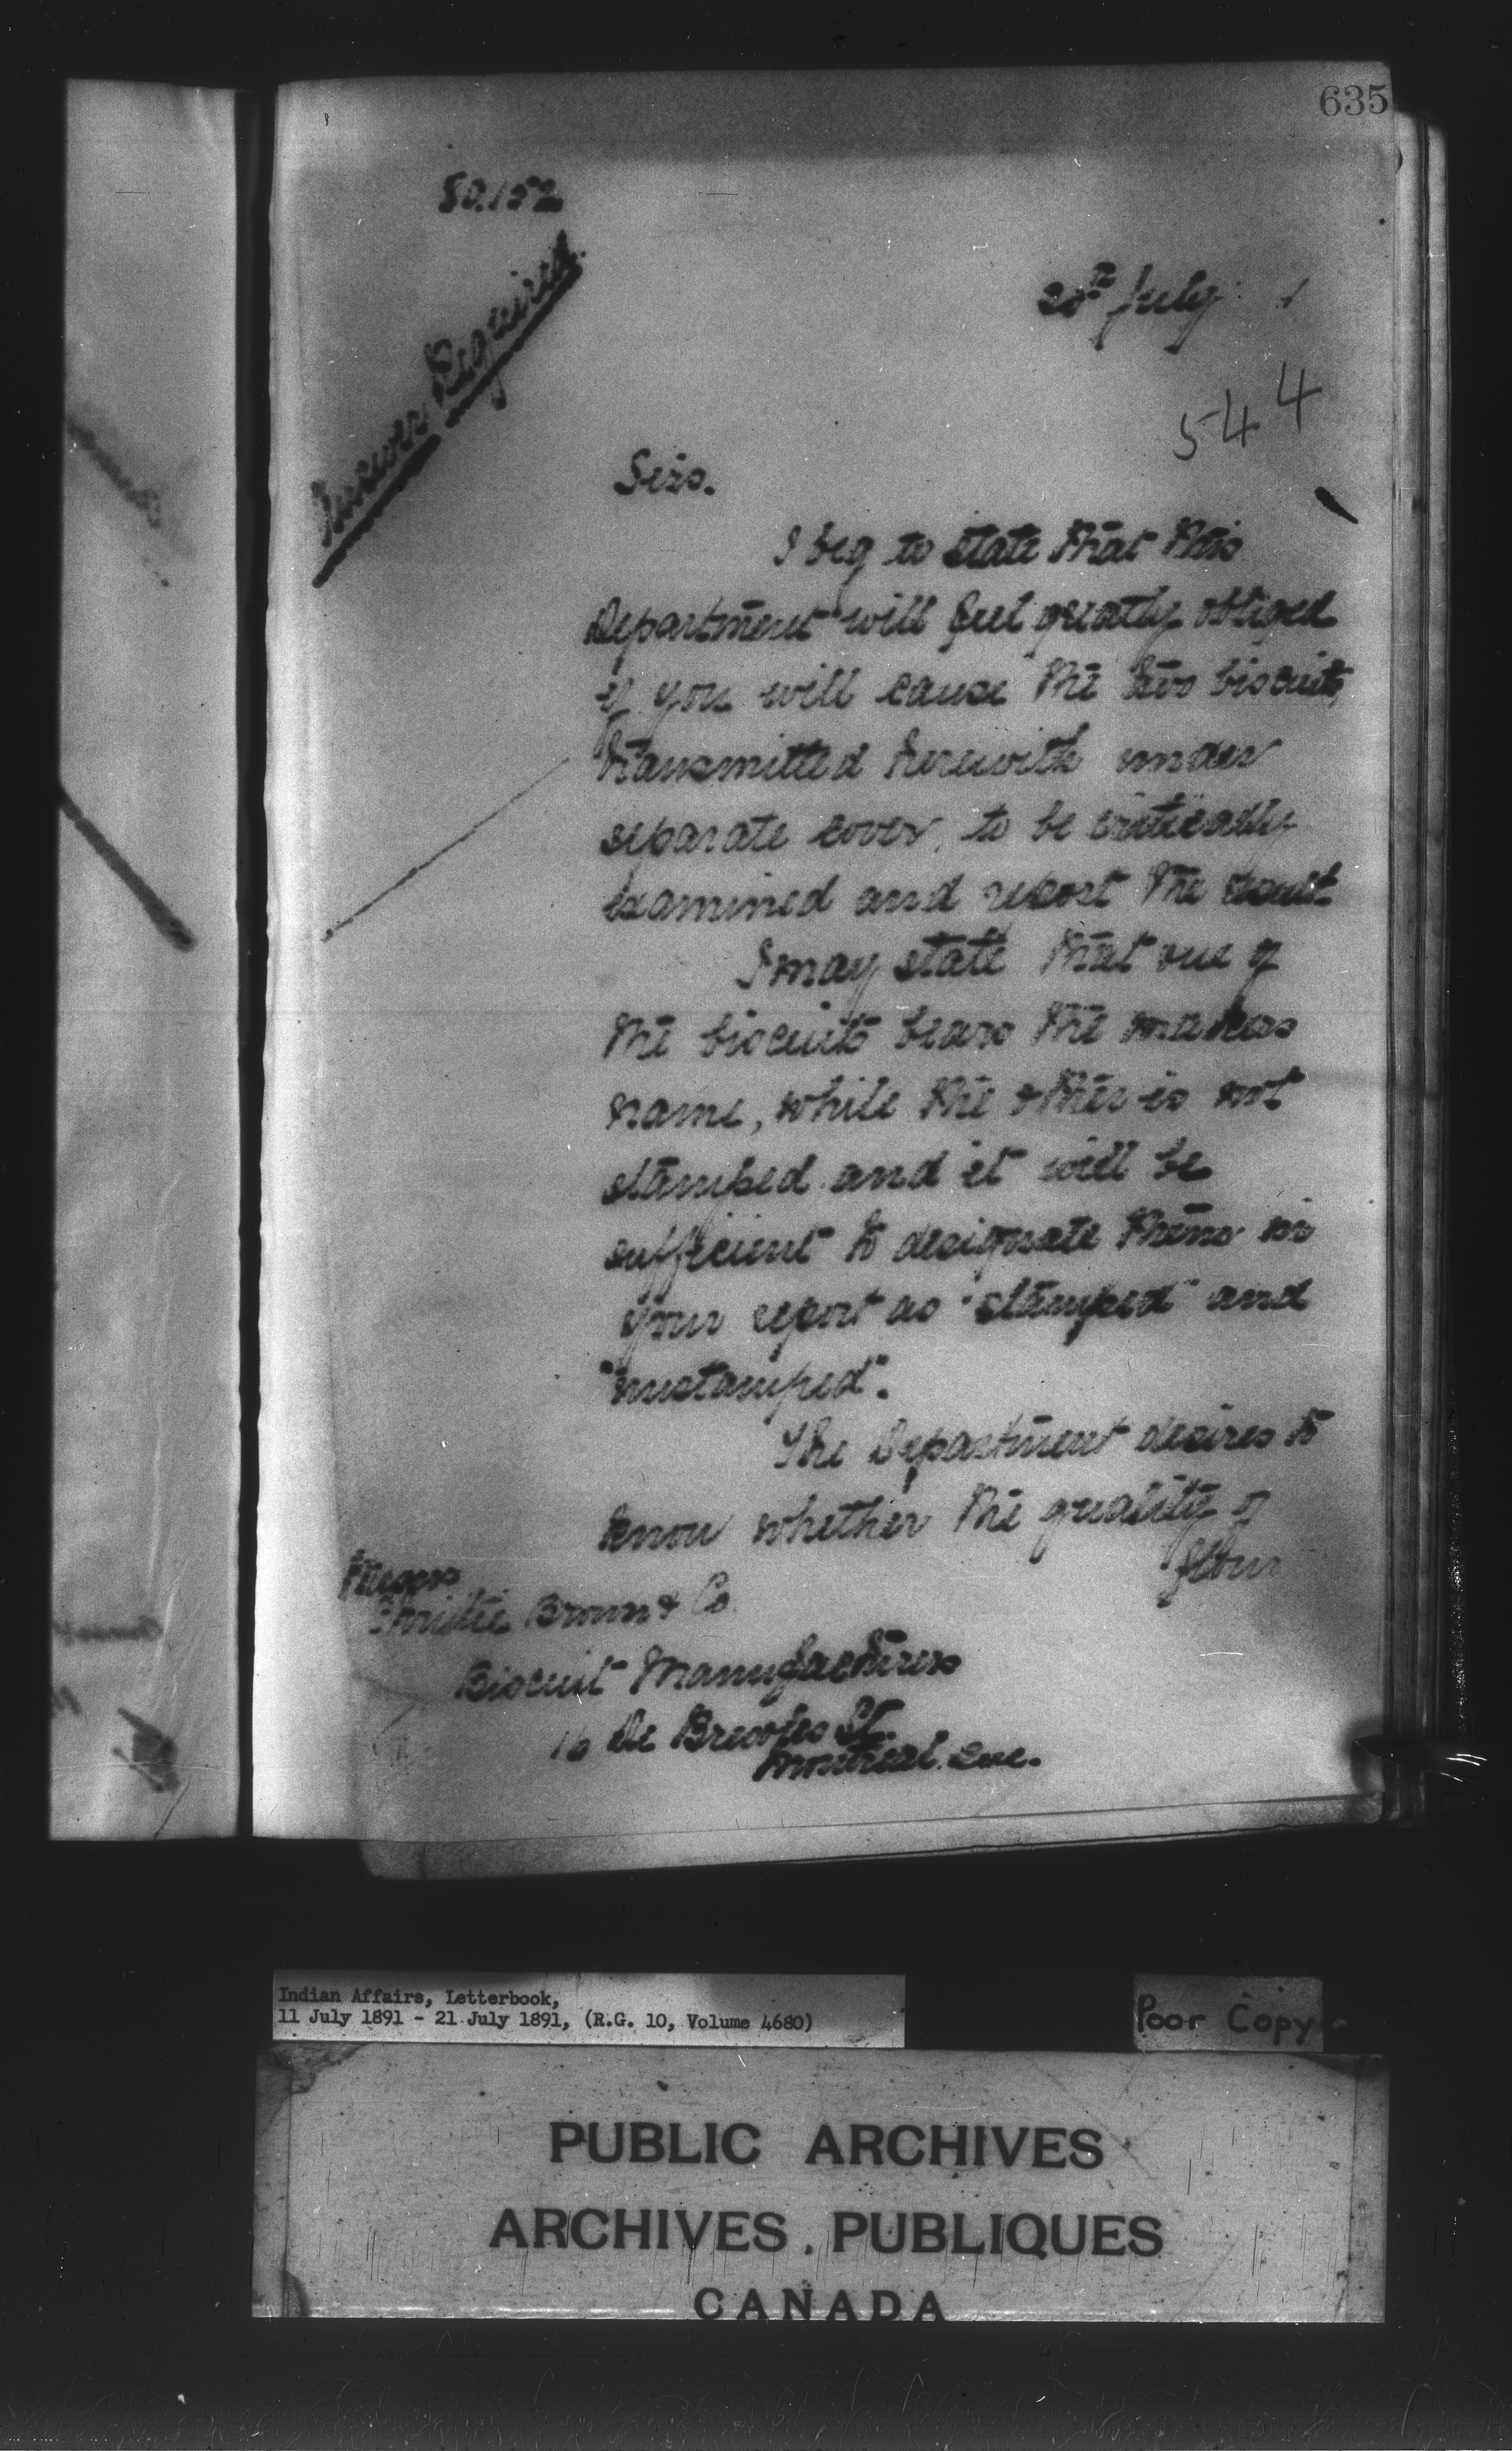 635
80.152
Answer Required.
20th July 1
544
Sirs.
I beg to state that this
Department will feel greatly obliged
if you will cause the two biscuits,
transmitted herewith under
separate cover, to be critically
examined and report the result.
I may state that one of
the biscuits bears the makers
name, while the other is not
stamped and it will be
sufficient to designate them in
your report as "stamped" and
"unstamped".
The Department desires to
know whether the quality of
flour
Messrs
Christie Brown & Co.
Biscuit Manufacturers
de St.
Montreal. Que.
Indian Affairs, Letterbook,
11 July 1891 - 21 July 1891, (R.G. 10, Volume 4680)
Poor Copy
PUBLIC ARCHIVES
ARCHIVES PUBLIQUES
CANADA